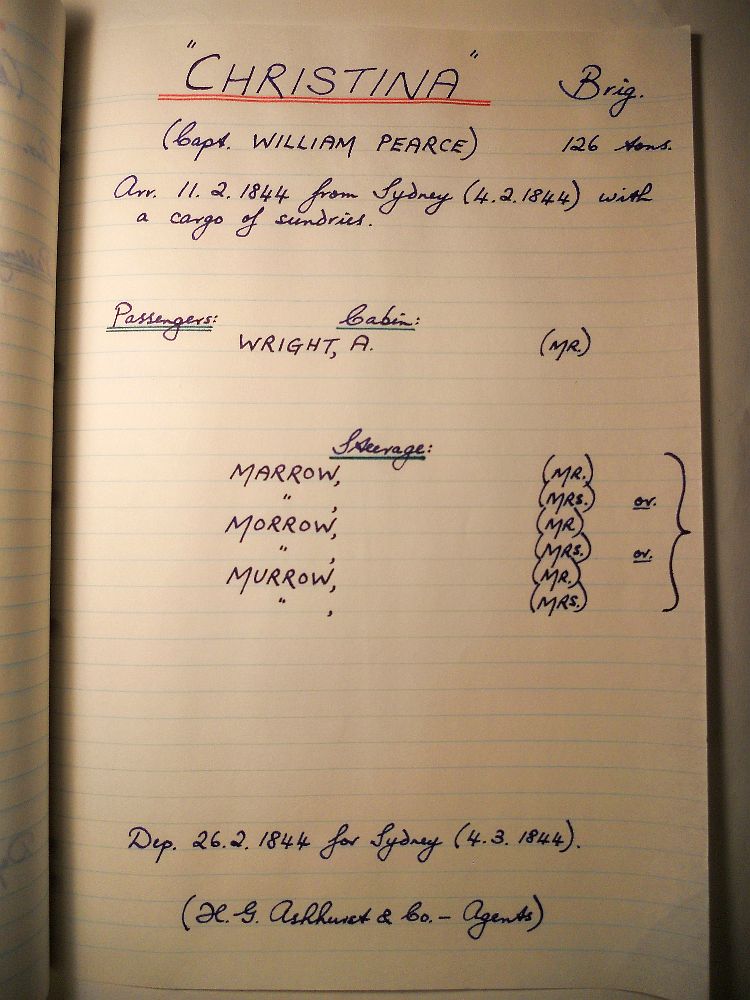 "CHRISTINA" Brig.
(Capt. WILLIAM PEARCE) 126 tons.
Arr. 11.2.1844 from Sydney (4.2.1844) with
a cargo of sundries.
Passengers: Cabin:
WRIGHT, A. (MR.)
Steerage:
MARROW, (MR.)
" , (MRS.) or.
MORROW, (MR.)
" , (MRS.) or.
MURROW, (MR.)
" , (MRS.)
Dep. 26.2.1844 for Sydney (4.3.1844).
(H. G. Ashhurst & Co. - Agents)